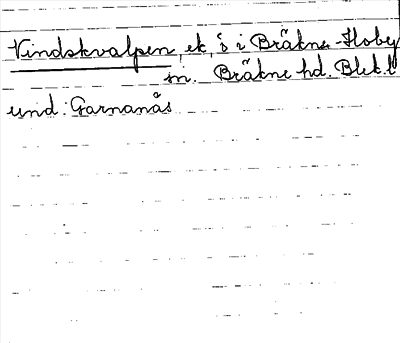 Vindskvalpen, ek, s i Bräkne-Hoby
sn. Bräkne hd. Blek. l
und: Garnanäs